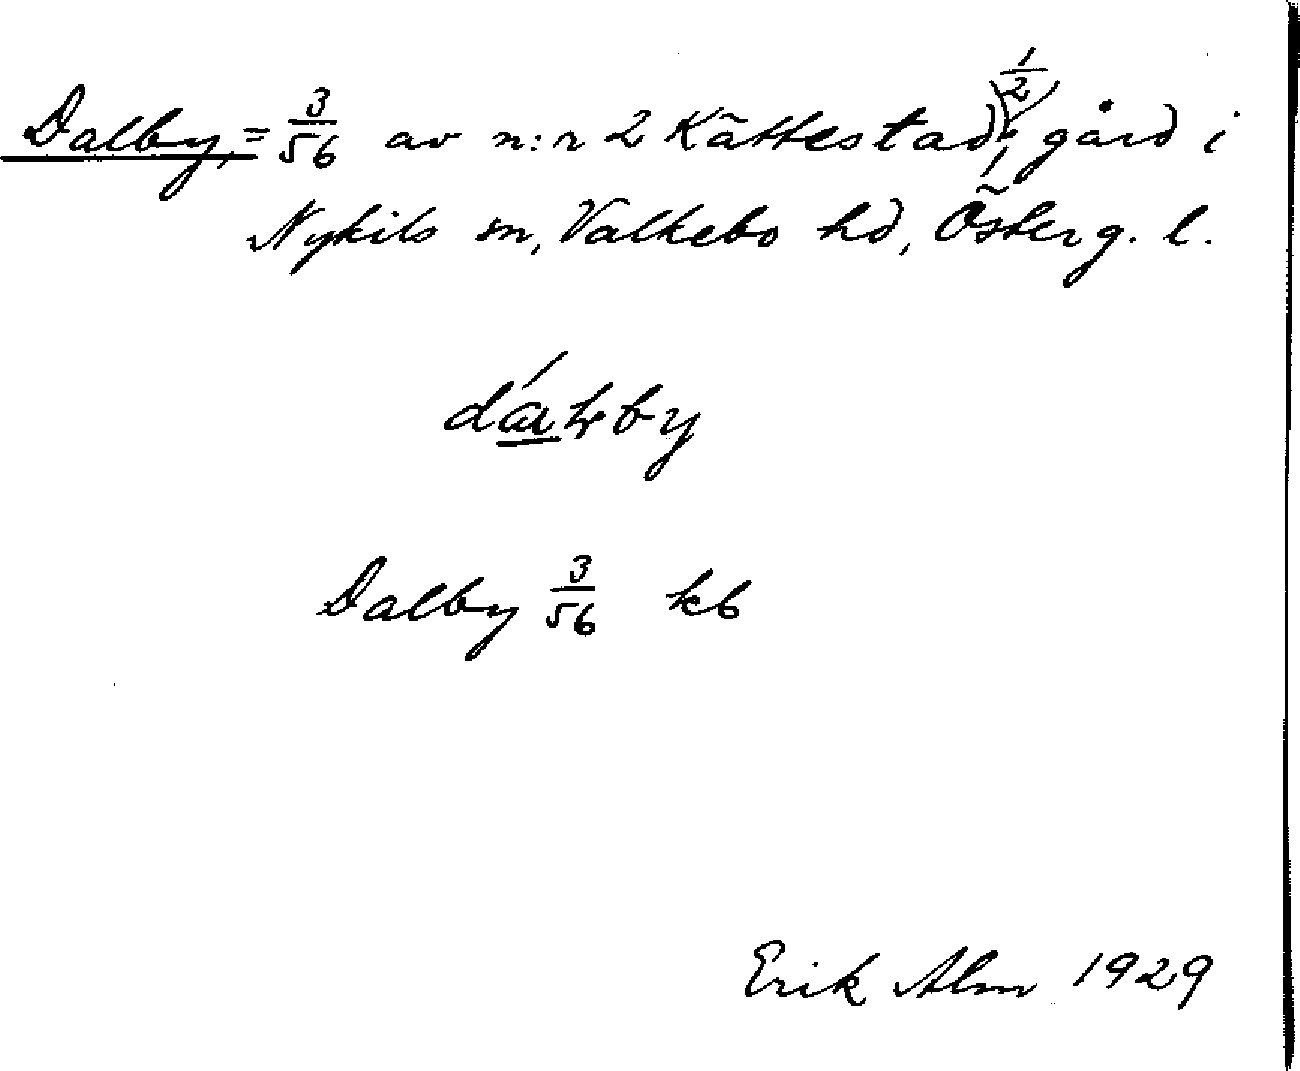 Dalby, = 3/56 av n:r 2 Kättestad (1/2), gård i
Nykils sn, Valkebo hd, Österg. l.
Dalby 3/56 kb
Erik Alm 1929